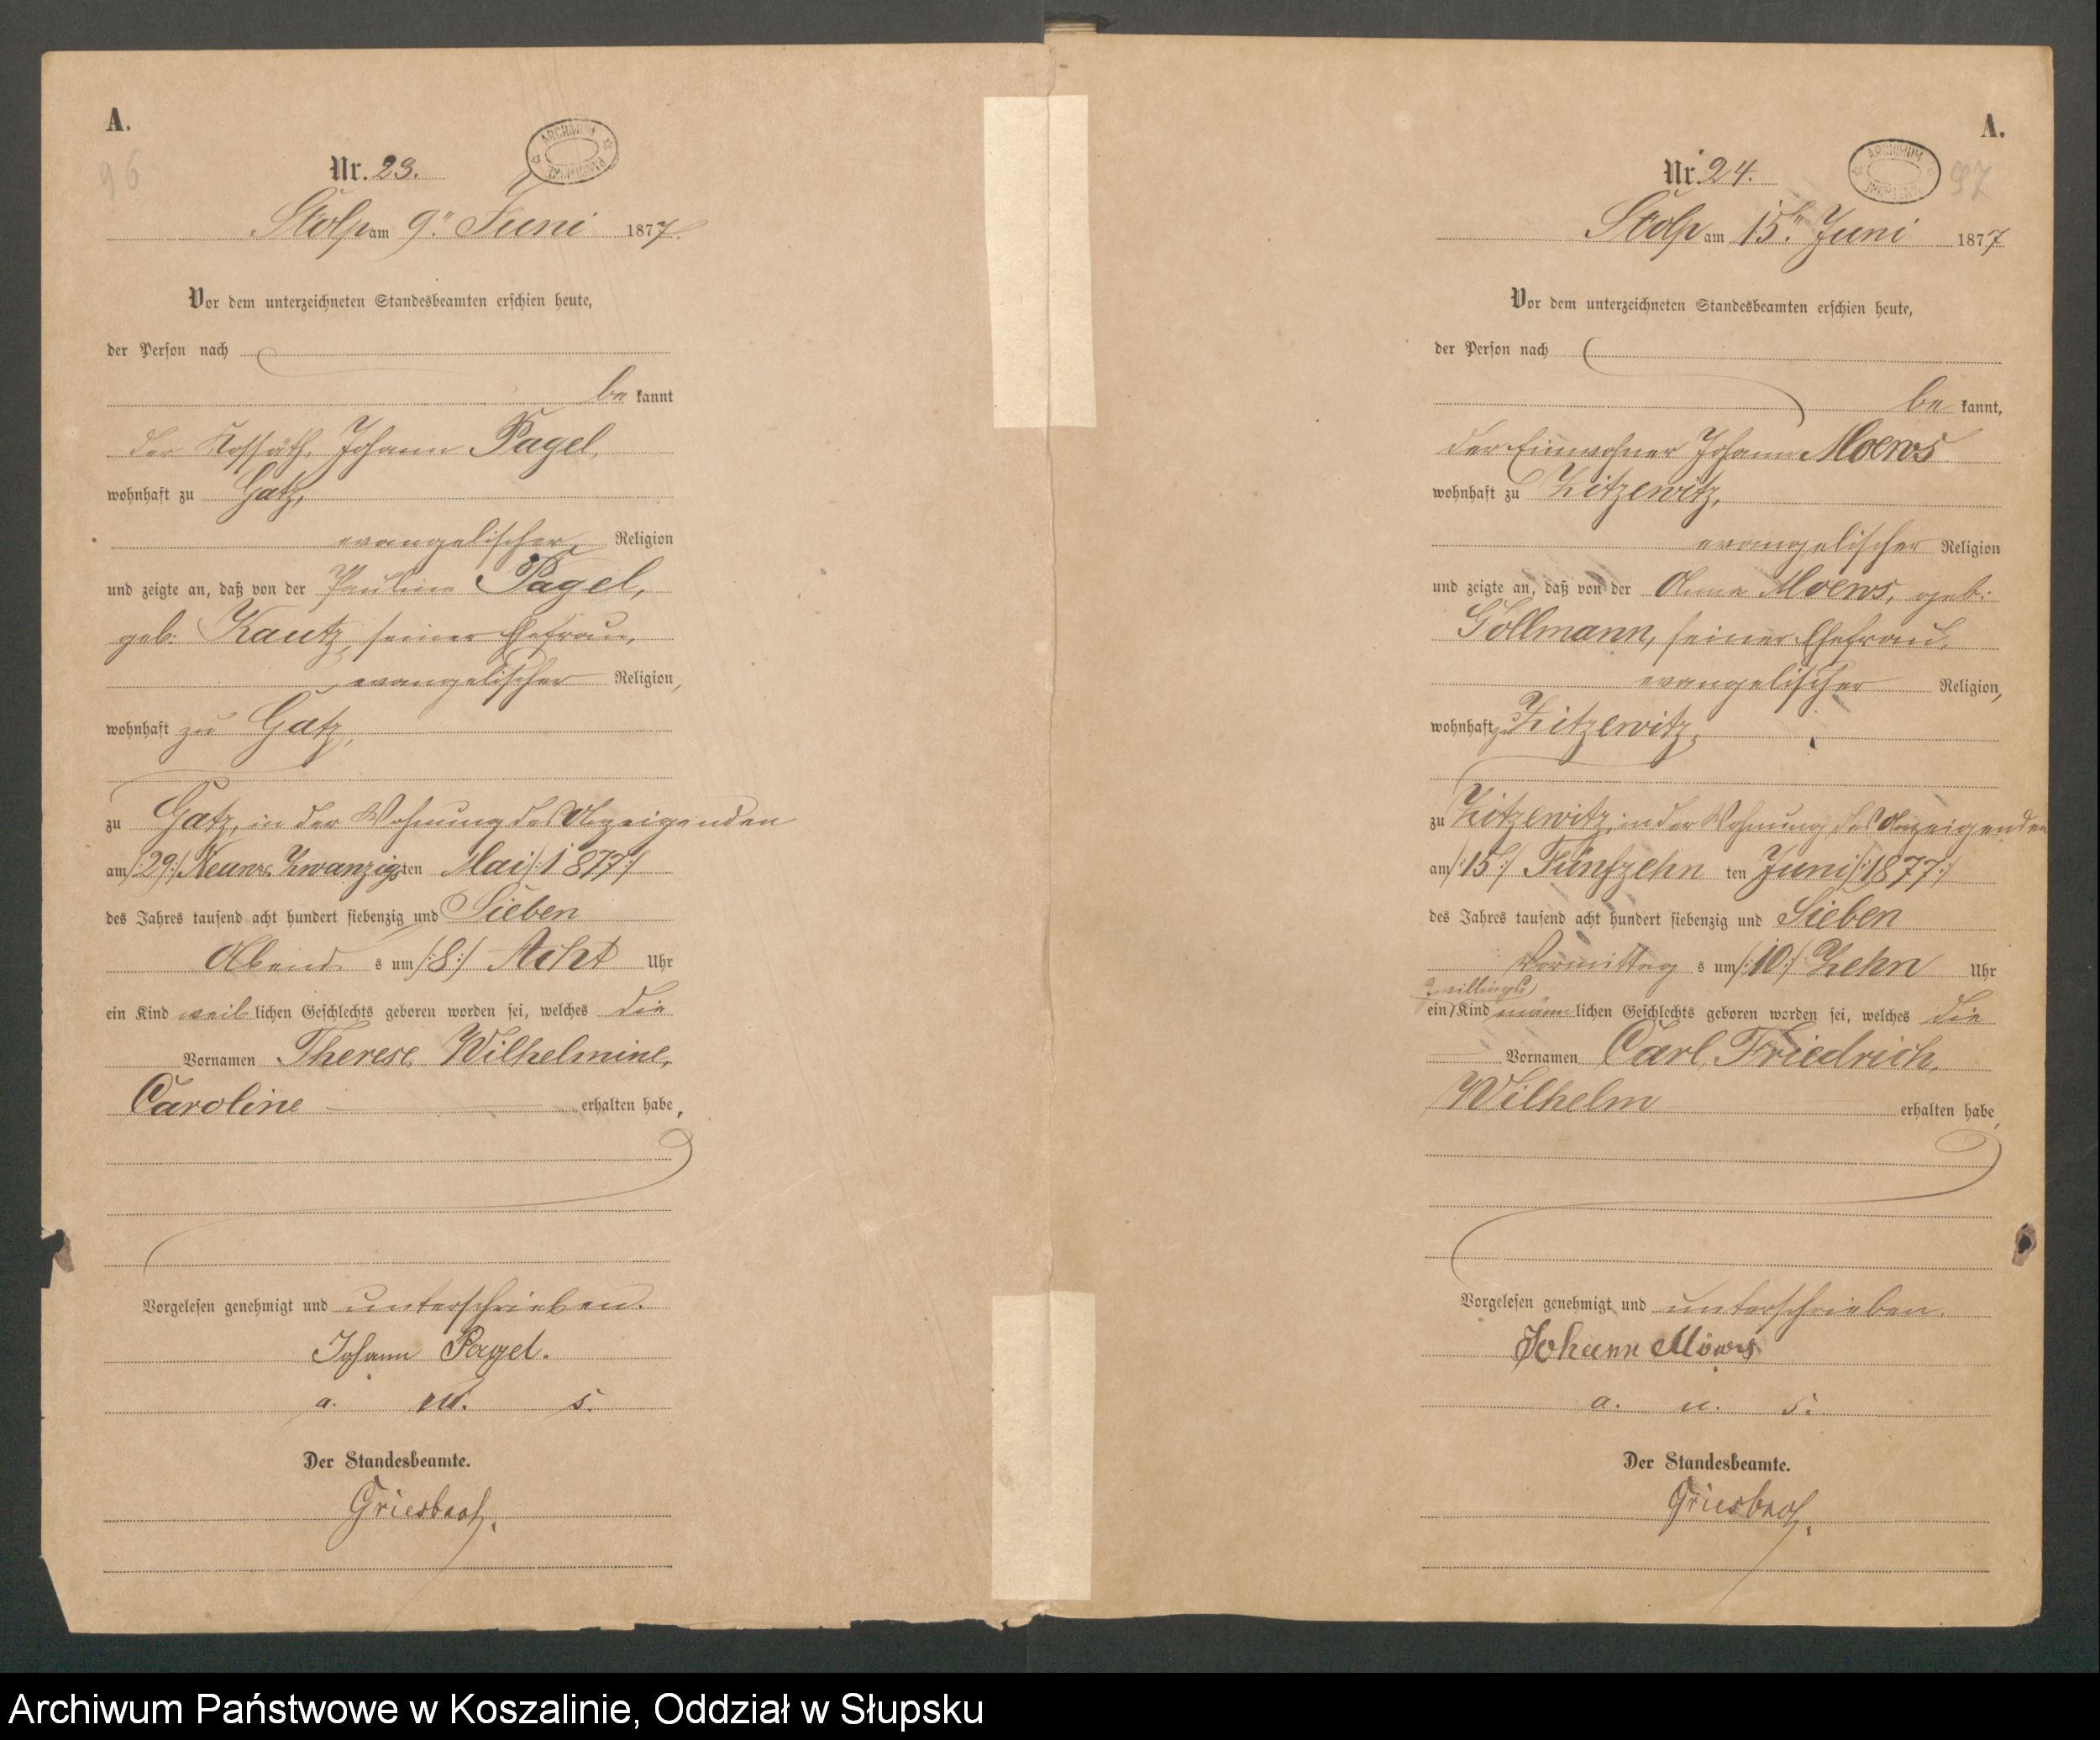 A.
96
Nr. 23.
ARCHIWUM PAŃSTWOWE
Stolp am 9ten Juni 1877.
Vor dem unterzeichneten Standesbeamten erschien heute,
der Person nach
be kannt
der Kossäth, Johann Pagel,
wohnhaft zu Gatz,
evangelischer, Religion
und zeigte an, daß von der Pauline Pagel,
geb. Kautz, seiner Ehefrau,
evangelischer Religion,
wohnhaft zu Gatz,
zu Gatz, in der Wohnung des Anzeigenden
am /:29:/ Neun u. Zwanzigsten Mai /:1877:/
des Jahres tausend acht hundert siebenzig und Sieben
Abend s um /:8:/ Acht Uhr
ein Kind weib lichen Geschlechts geboren worden sei, welches die
Vornamen Therese, Wilhelmine,
Caroline erhalten habe,
Vorgelesen genehmigt und unterschrieben.
Johann Pagel.
a. u. s.
Der Standesbeamte.
Griesbach.
A.
97
Nr. 24.
ARCHIWUM PAŃSTWOWE
Stolp am 15ten Juni 1877
Vor dem unterzeichneten Standesbeamten erschien heute,
der Person nach
be kannt,
der Einwohner Johann Moews
wohnhaft zu Zitzewitz,
evangelischer Religion
und zeigte an, daß von der Anna Moews, geb.
Gollmann, seiner Ehefrau,
evangelischer Religion,
wohnhaft zu Zitzewitz,
zu Zitzewitz, in der Wohnung des Anzeigenden
am /:15:/ Fünfzehn ten Juni /:1877:/
des Jahres tausend acht hundert siebenzig und Sieben
Vormittag s um /:10:/ Zehn Uhr
Zwillings
ein Kind männ lichen Geschlechts geboren worden sei, welches die
Vornamen Carl, Friedrich,
Wilhelm erhalten habe,
Vorgelesen genehmigt und unterschrieben.
Johann Möws
a. u. s.
Der Standesbeamte.
Griesbach.
Archiwum Państwowe w Koszalinie, Oddział w Słupsku